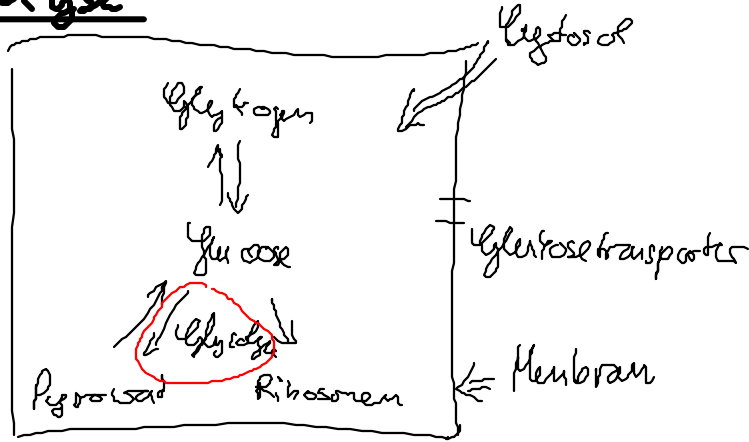 Cytosol
Glykogen
Glucose
Glukosetransporter
Glykolyse
Membran
Pyrovat
Ribosomen